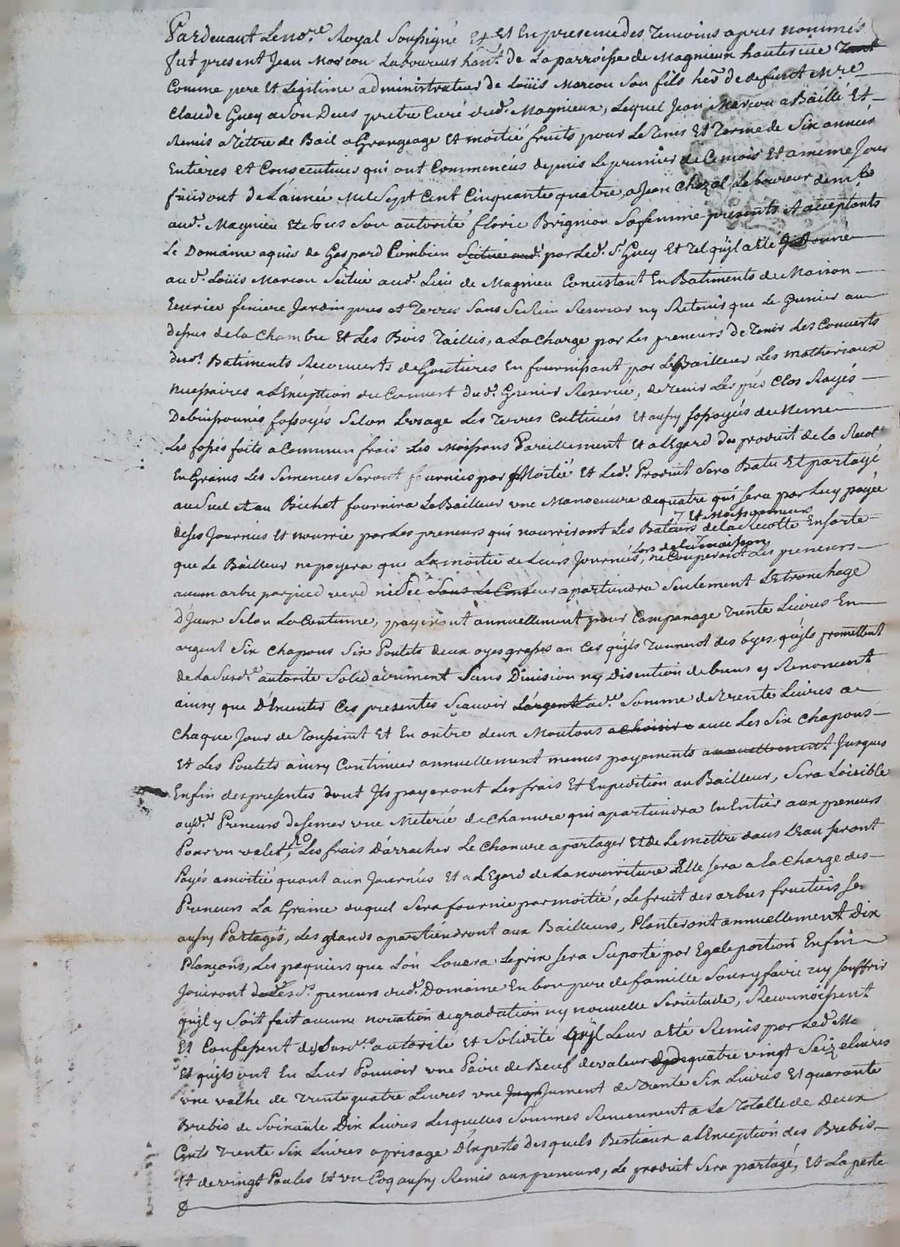 Pardevant Le no.re Royal Soussigné Et Et En presence des Temoins apres nommés
fut present Jean Marcou Laboureur hant. de La parroisse de Magnieu hauterive
Comme pere Et Legitime administrateur de Loüis Marcou Son fils her. de defunt mre
Claude Guey a Son Deces pretre Curé dud. Magnieux, Lequel Jean Marcou a Baillé Et
Remis a Tittre de Bail a Grangeage Et moitié fruits pour Le Tems Et Terme de Six années
Entieres Et Consecutives qui ont Commencées depuis Le premier de Ce mois Et a meme Jour
finiront de L'année Mil Sept Cent Cinquante quatre, a Jean Chazal Laboureur
aud. Magnieu Et Sous Son autorité florie Brignon Sa femme presents Et acceptants
Le Domaine aquis de Gaspard Combien par Led. Sr. Guey Et tel qu'jl a eté
aud. Loüis Marcou Scitué aud. Lieu de Magnieu Consistant En Batiments de Maison
Ecurie feniere Jardin prés et Terres Sans Se Rien Reserver ny Retenir que Le Grenier au
dessus de La Chambre Et Les Bois Taillis, a La Charge par Les preneurs de Tenir Les Couverts
desd. Batiments Recouverts de Goutieres En fournissant par Le Bailleur Les matheriaux
necessaires a L'Exception du Couvert dud. Grenier Reservé, de Tenir Les prés Clos Rayés
fossoyés Selon L'usage Les Terres Cultivées Et aussy fossoyées de Meme
Les fossés faits a Commun frais Les Moissons Pareillement Et a L'egard du produit de La Recolte
En Grains Les Semences Seront fournies par Moitié Et Led. Produit Sera Batu Et partagé
au Suel et au Bichet fournira Le Bailleur une Manoeuvre de quatre qui Sera par Luy payée
de Ses Journées Et nourrie par Les preneurs qui nourriront Les Bateurs Et Moissonneurs de La Recolte En Sorte
que Le Bailleur ne payera que La moitié de Leurs Journées, Lors de La moisson ne Couperont Les preneurs
aucun arbre par pied verd ni Sec Sans Le apartiendra Seulement L'Etronchage
D'jceux Selon La Coutume, payeront annuellement pour Campanage Trente Livres En
argent Six Chapons Six Poulets deux oyes grasses En Cas qu'jls Tiennent des oyes, qu'jls promettent
de La Susd. autorité Solidairement Sans Division ny Discution de biens y Renoncent
ainsy que D'Executer Ces presentes Scavoir L'argent Lad. Somme de Trente Livres a
Chaque Jour de Toussaint Et En outre deux Moutons a choisir avec Les Six Chapons
Et Les Poulets ainsy Continuer annuellement memes payements annuellement Jusques
Enfin des presentes dont Jls payeront Les frais Et Expedition au Bailleur, Sera Loisible
auxd. Preneurs de Semer une Meterée de Chanvre qui apartiendra En Entier aux preneurs
Pour un valet, Les frais D'arracher Le Chanvre a partager Et de Le mettre dans L'eau Seront
Payés a moitié quant aux Journées Et a L'Egard de La nourriture Elle Sera a La Charge des
Preneurs La Graine duquel Sera fournie par moitié, Le fruit des arbres fruitiers Sera
aussy Partagés, Les glands apartiendront aux Bailleurs, Planteront annuellement Dix
Plançons, Les pagniers que L'on Louera Le prix Sera Suporté par Egale portion Enfin
Jouiront Lesd. preneurs dud. Domaine En bon pere de famille Sans y faire ny Souffrir
qu'jl y Soit fait aucune novation degradation ny nouvelle Servitude, Reconnoissent
Et Confessent de Susd. autorité Et Solidité qu'jl Leur a eté Remis par Led. Me
Et qu'jls ont En Leur Pouvoir une Paire de Beuf de valeur de quatre vingt Seize Livres
une vache de Trente quatre Livres une Jument de Trente Six Livres Et quarante
Brebis de Soixante Dix Livres Lesquelles Sommes Reviennent a La Totalle de Deux
Cents Trente Six Livres a prisage D'Experts desquels Bestiaux a L'Exception des Brebis
Et de vingt Poules Et un Coq aussy Remis aux preneurs, Le produit Sera partagé, Et La perte